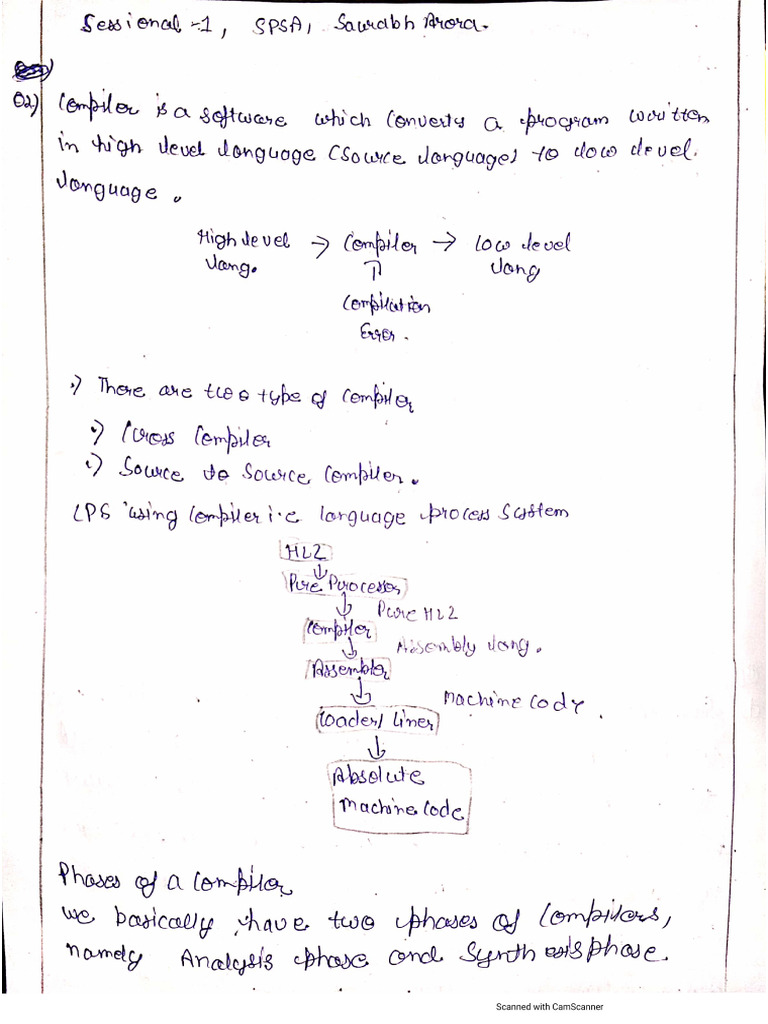 Sessional -1, SPSA, Saurabh Arora.
Q2.) Compiler is a software which converts a program written
in high level language (source language) to low level
language.
High level → Compiler → low level
lang. ⇑ lang
Compilation
Error.
•) There are two type of Compiler
•) Cross Compiler
•) Source to Source Compiler.
LPS using Compiler i.e language process System
HLL
↓
Pure Processor
↓ Pure HLL
Compiler
↓ Assembly lang.
Assembler
↓ Machine Code.
Loader/Liner
↓
Absolute
Machine Code
Phases of a Compiler
We basically have two phases of Compilers,
namely Analysis phase and Synthesis phase.
Scanned with CamScanner